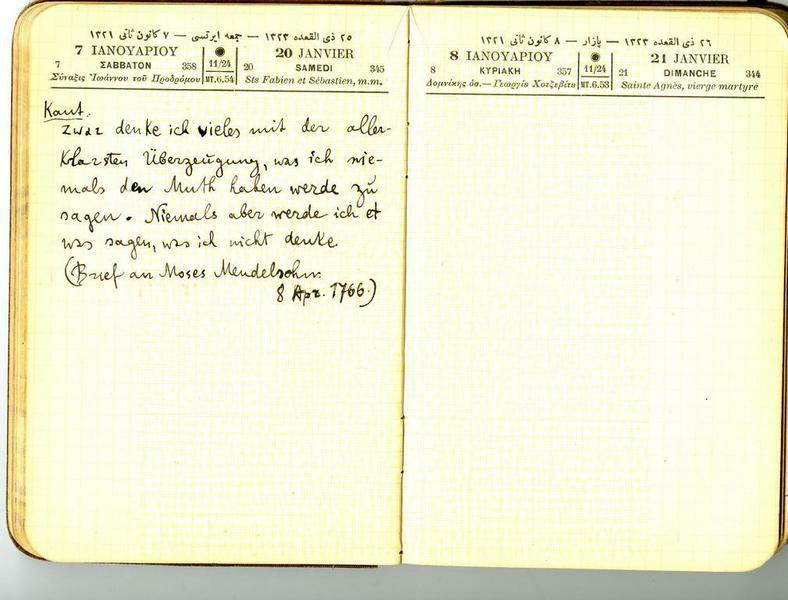 ٢٥ ذی القعده ١٣٢٣ — جمعه ایرتسی — ٧ کانون ثانی ١٣٢١
7 ΙΑΝΟΥΑΡΙΟΥ 20 JANVIER
7 ΣΑΒΒΑΤΟΝ 358 11/24 20 SAMEDI 345
Σύναξις Ἰωάννου τοῦ Προδρόμου ΜΤ.6.54 Sts Fabien et Sébastien, m.m.
Kant.
Zwar denke ich vieles mit der aller-
klarsten Überzeugung, was ich nie-
mals den Muth haben werde zu
sagen. Niemals aber werde ich et
was sagen, was ich nicht denke.
(Brief an Moses Mendelsohn.
8 Apr. 1766.)
٢٦ ذی القعده ١٣٢٣ — بازار — ٨ کانون ثانی ١٣٢١
8 ΙΑΝΟΥΑΡΙΟΥ 21 JANVIER
8 ΚΥΡΙΑΚΗ 357 11/24 21 DIMANCHE 344
Δομνίκης ὁσ.— Γεωργίυ Χοτζεβίτυ ΜΤ.6.53 Sainte Agnès, vierge martyre